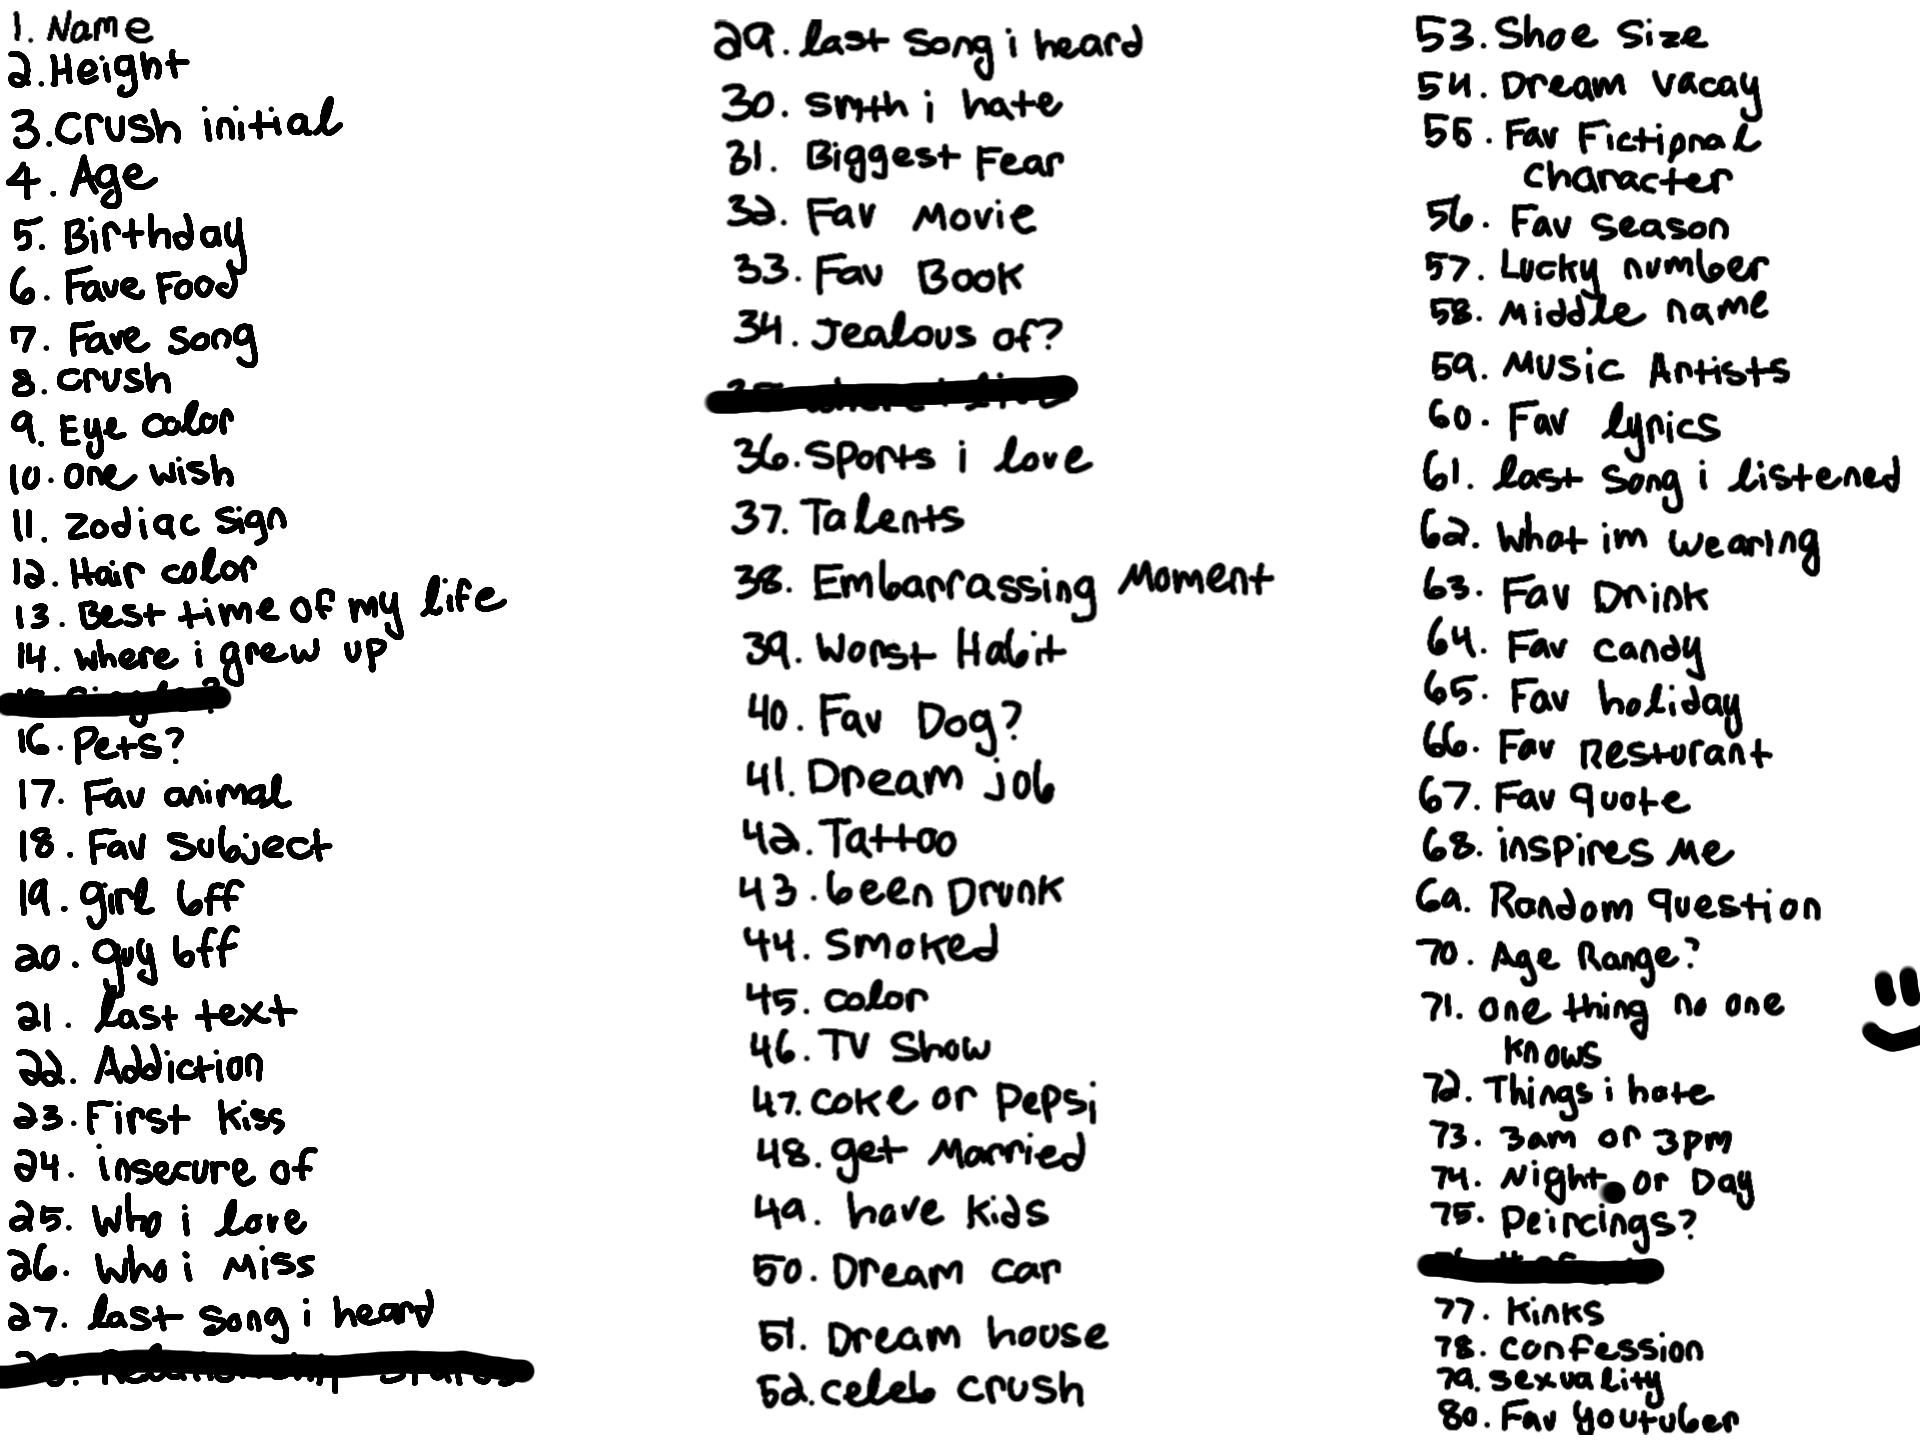 1. Name
2. Height
3. Crush initial
4. Age
5. Birthday
6. Fave Food
7. Fave song
8. crush
9. Eye color
10. one wish
11. zodiac sign
12. Hair color
13. Best time of my life
14. where i grew up
16. Pets?
17. Fav animal
18. Fav subject
19. girl bff
20. guy bff
21. last text
22. Addiction
23. First kiss
24. insecure of
25. Who i love
26. Who i Miss
27. last song i heard
29. last song i heard
30. smth i hate
31. Biggest Fear
32. Fav Movie
33. Fav Book
34. Jealous of?
36. Sports i love
37. Talents
38. Embarrassing Moment
39. Worst Habit
40. Fav Dog?
41. Dream job
42. Tattoo
43. been Drunk
44. Smoked
45. color
46. TV Show
47. coke or Pepsi
48. get Married
49. have kids
50. Dream car
51. Dream house
52. celeb crush
53. Shoe Size
54. Dream vacay
55. Fav Fictional
character
56. Fav season
57. Lucky number
58. Middle name
59. Music Artists
60. Fav lyrics
61. last song i listened
62. What im wearing
63. Fav Drink
64. Fav candy
65. Fav holiday
66. Fav Resturant
67. Fav quote
68. inspires Me
69. Random question
70. Age Range?
71. one thing no one
knows
72. Things i hate
73. 3am or 3pm
74. Night or Day
75. Peircings?
77. kinks
78. confession
79. sexuality
80. Fav youtuber